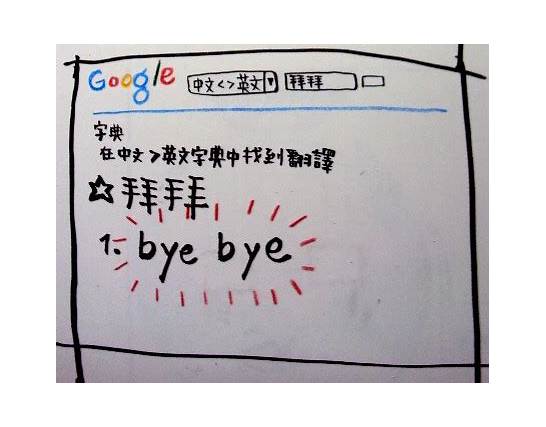 Google 中文<>英文 拜拜
字典
在中文>英文字典中找到翻譯
☆拜拜
1. bye bye